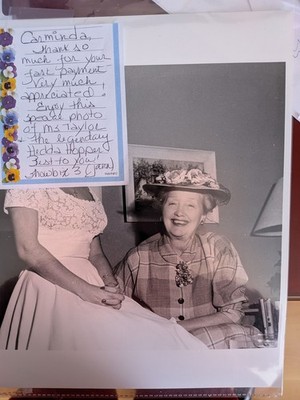 Carminda,
Thank so
much for your
fast payment
Very much
appreciated!
Enjoy this
special photo
of Ms Taylor
& the legendary
Hedda Hopper
Best to you!